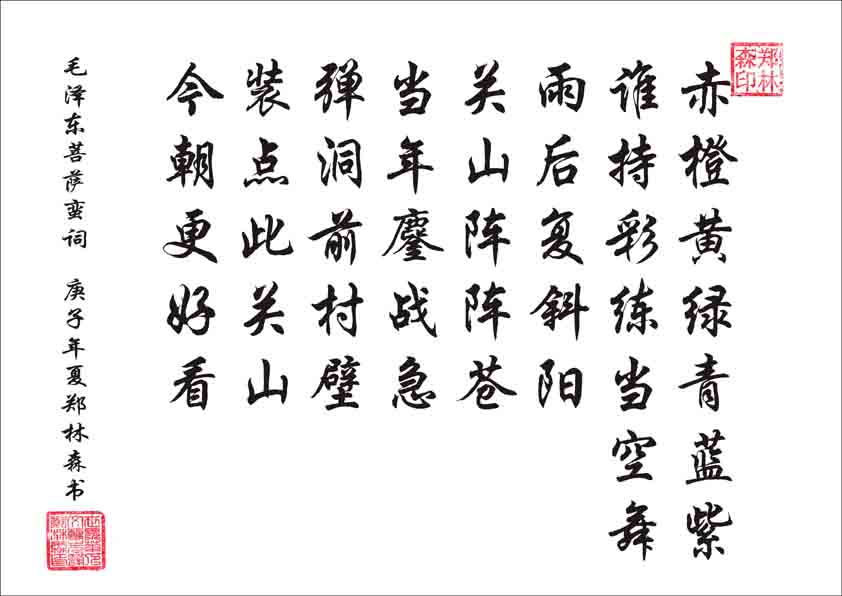 郑林森印
赤橙黄绿青蓝紫
谁持彩练当空舞
雨后复斜阳
关山阵阵苍
当年鏖战急
弹洞前村壁
装点此关山
今朝更好看
毛泽东菩萨蛮词 庚子年夏郑林森书